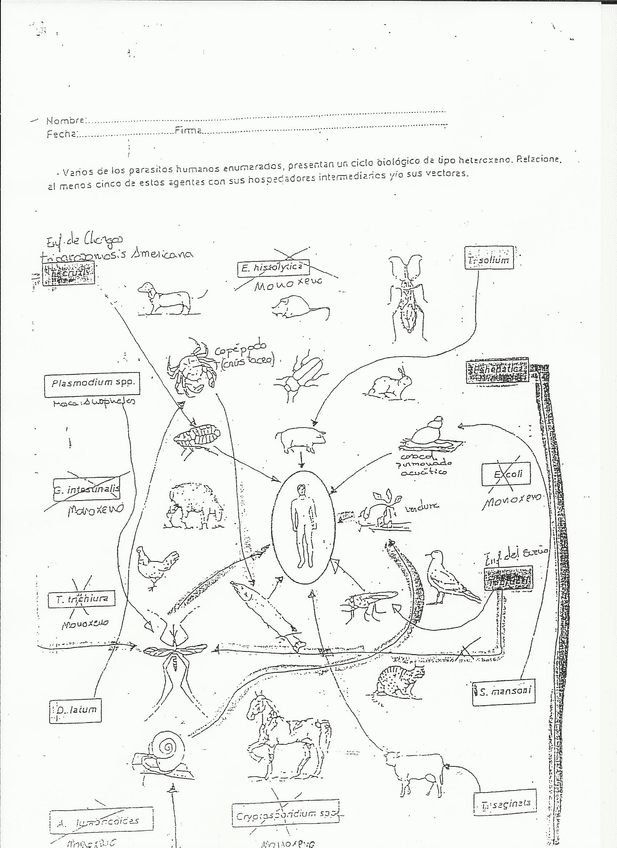 Nombre:
Fecha: Firma
- Varios de los parasitos humanos enumerados, presentan un ciclo biológico de tipo heteroxeno. Relacione,
al menos cinco de estos agentes con sus hospedadores intermediarios y/o sus vectores.
Enf. de Chagas
Americana
E. histolytica
Monoxeno
T. solium
copépodo
(crustáceo)
Plasmodium spp.
caracol
pulmonado
acuático
E. coli
Monoxeno
G. intestinalis
Monoxeno
verdura
Enf. del Sueño
T. trichiura
Monoxeno
D. latum
S. mansoni
T. saginata
A. lumbricoides
Cryptosporidium spp.
Monoxeno
Monoxeno